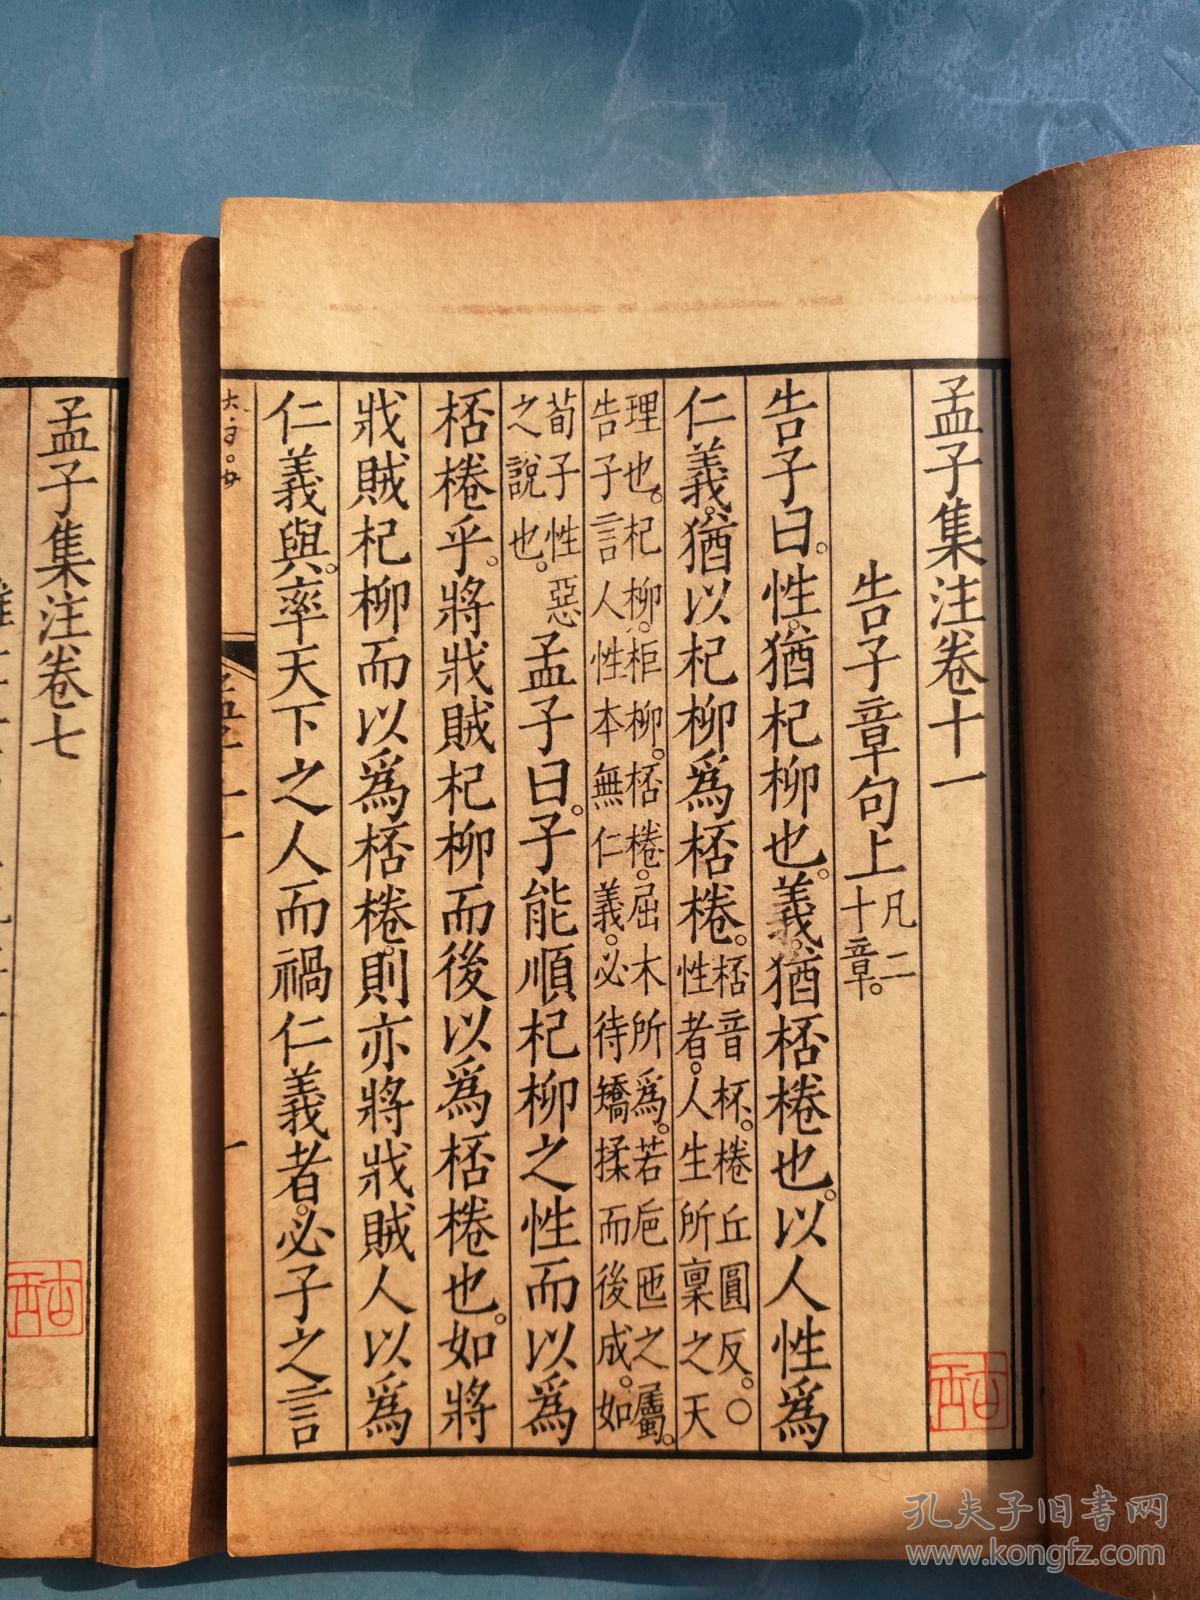 孟子集注卷十一
告子章句上凡二
十章。
告子曰。性。猶杞柳也。義。猶桮棬也。以人性爲
仁義。猶以杞柳爲桮棬。桮音杯。棬丘圓反。○
性者。人生所稟之天
理也。杞柳。柜柳。桮棬。屈木所爲。若巵匜之屬。
告子言人性本無仁義。必待矯揉而後成。如
荀子性惡
之說也。孟子曰。子能順杞柳之性而以爲
桮棬乎。將戕賊杞柳而後以爲桮棬也。如將
戕賊杞柳而以爲桮棬。則亦將戕賊人以爲
仁義與。率天下之人而禍仁義者。必子之言
孟子集注卷七
孔夫子旧书网
www.kongfz.com